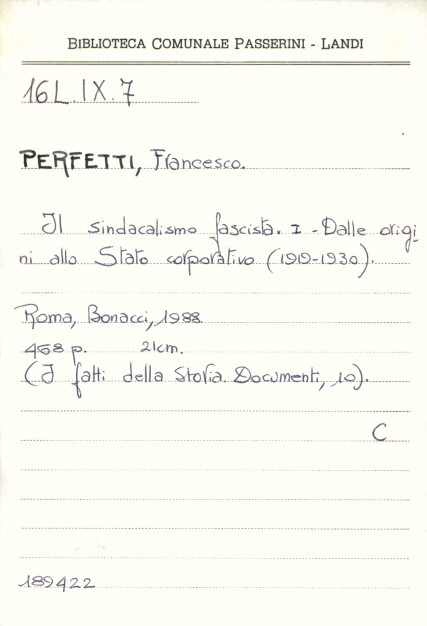 BIBLIOTECA COMUNALE PASSERINI - LANDI
16L.IX.7
PERFETTI, Francesco.
Il sindacalismo fascista. I - Dalle origi
ni allo Stato corporativo (1919-1930).
Roma, Bonacci, 1988
468 p. 21cm.
(I fatti della Storia. Documenti, 10).
C
189422